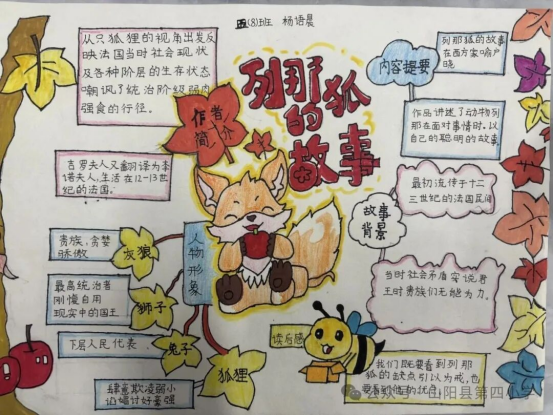 五(8)班 杨语晨
从只狐狸的视角出发反
映法国当时社会现状
及各种阶层的生存状态
嘲讽了统治阶级弱肉
强食的行径。
作者
简介
列那狐
的
故事
内容提要
列那狐的故事
在西方家喻户
晓
作品讲述了动物列
那在面对事情时,以
自己的聪明的故事
吉罗夫人又翻译为季
诺夫人,生活在12-13世
纪的法国。
最初流传于十二
三世纪的法国民间
故事
背景
人物形象
贵族,贪婪
骄傲
灰狼
最高统治者
刚愎自用
现实中的国王
狮子
下层人民代表
兔子
肆意欺凌弱小
狐狸
当时社会矛盾突
王时贵族们无能为力。
读后感
我们既要看到列那
狐的缺点引以为戒,也
山阳县第四小学